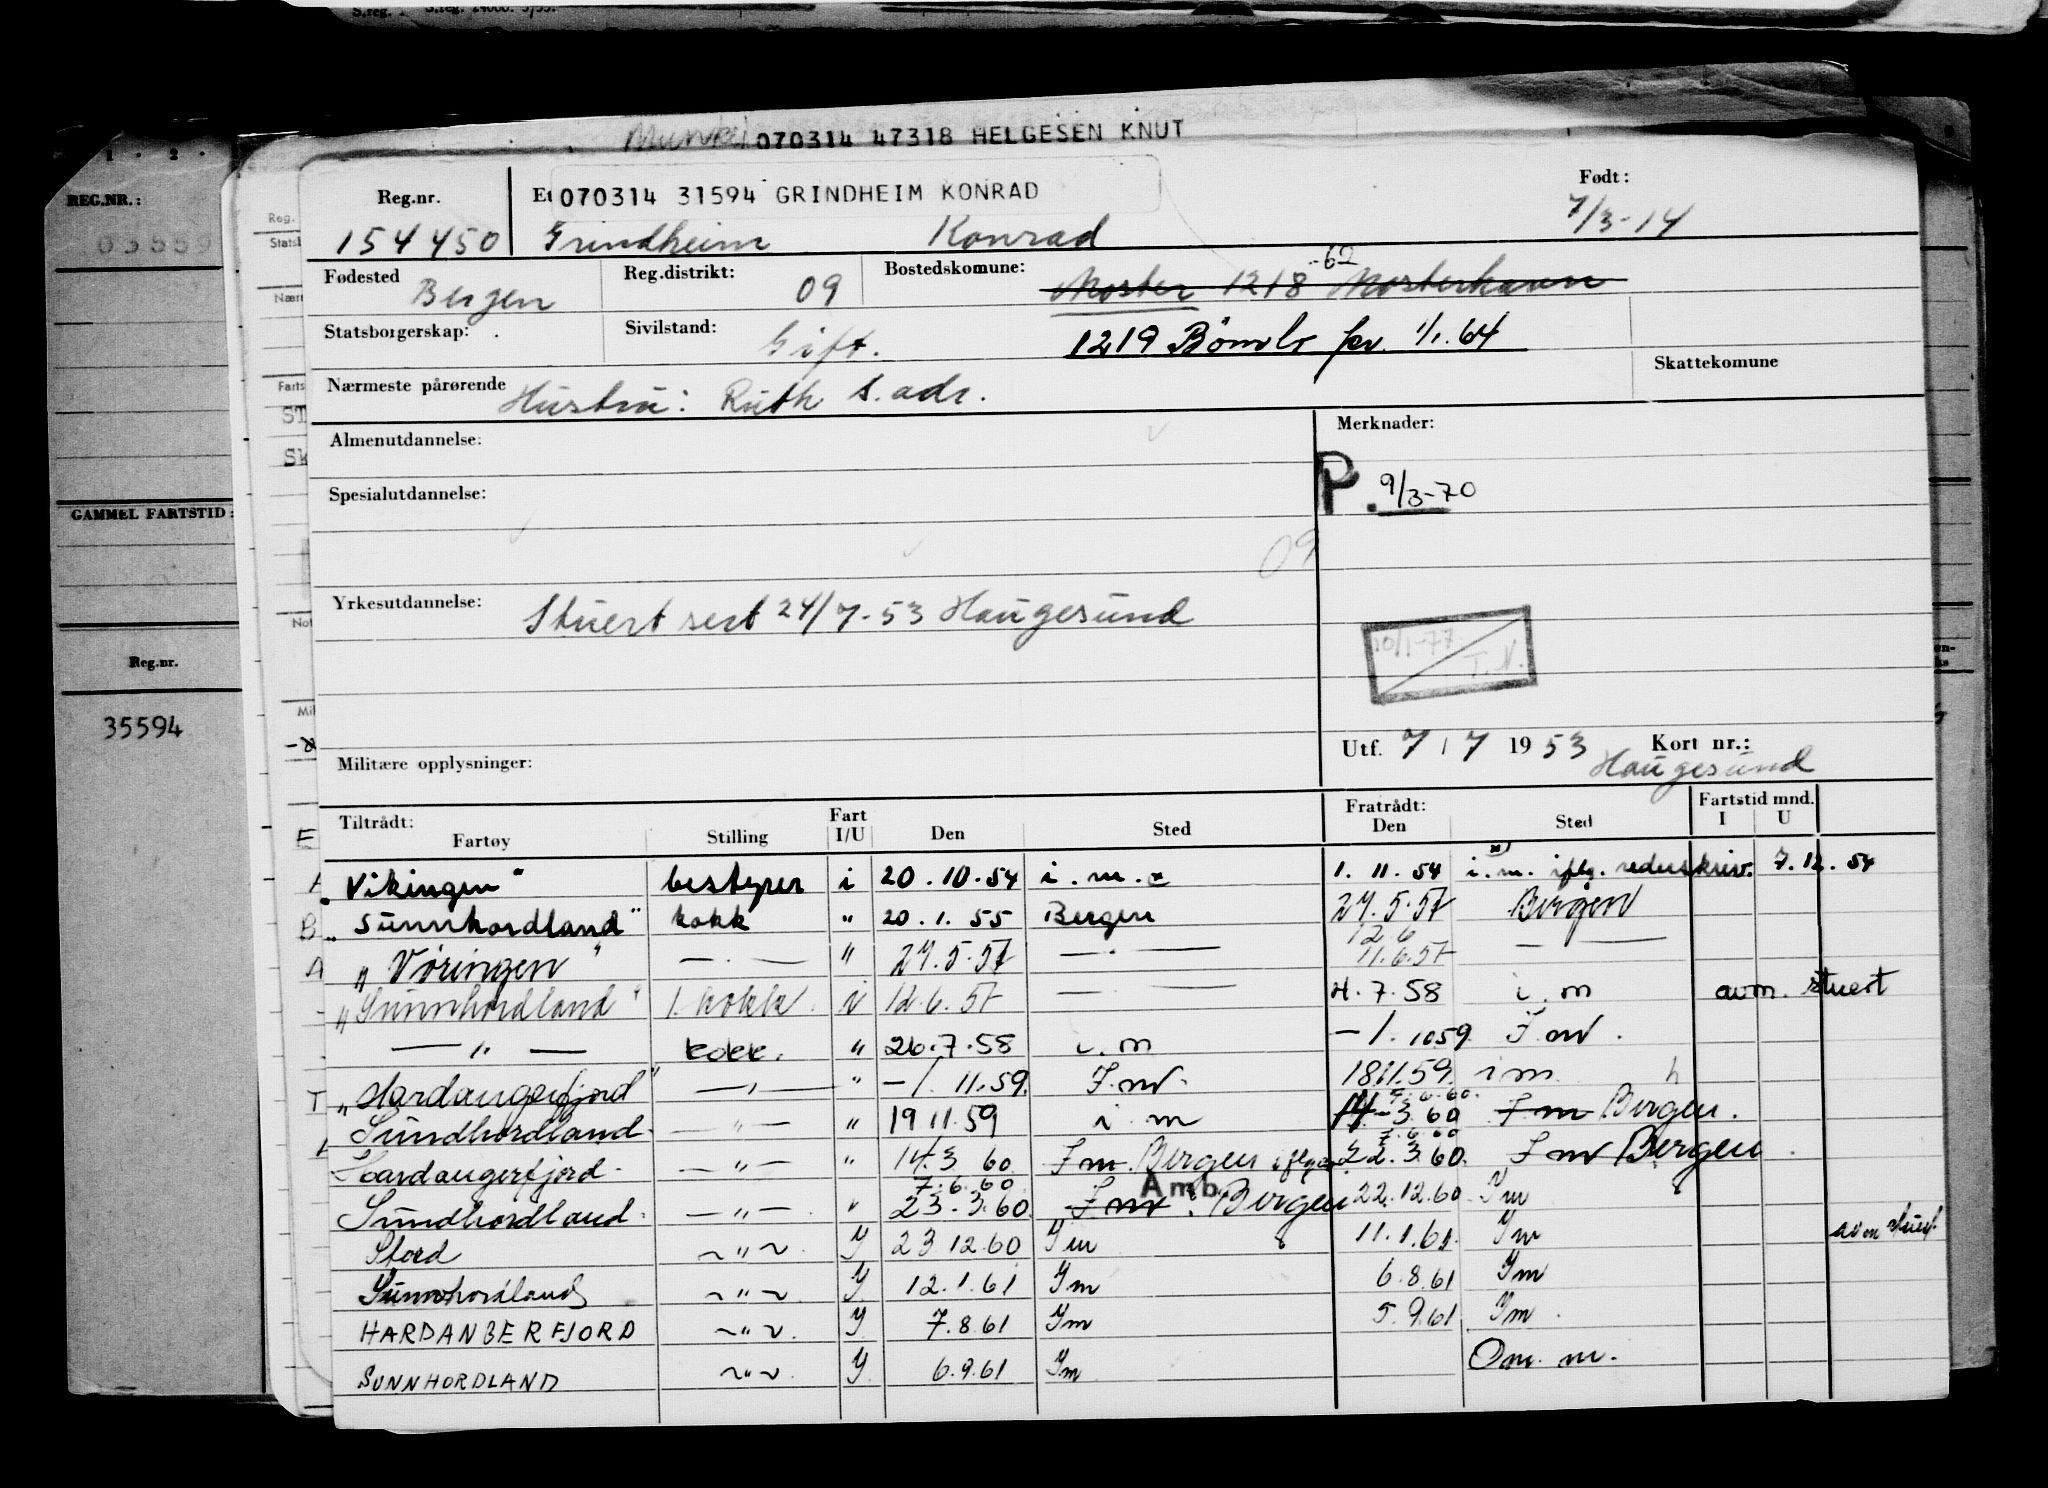 070314 47318 HELGESEN KNUT
Reg.nr. Et 070314 31594 GRINDHEIM KONRAD Født:
154450 Grindheim Konrad 7/3-14
Fødested Bergen Reg.distrikt: 09 Bostedskomune: Moster 1218 -62 Mosterhavn
Statsborgerskap: Sivilstand: Gift. 1219 Bömlo fra 1/1.64
Nærmeste pårørende Hustru: Ruth s. adr. Skattekomune
Almenutdannelse: Merknader:
P. 9/3-70
Spesialutdannelse:
09
Yrkesutdannelse: Stuert sert 24/7-53 Haugesund
10/1-77 T.N.
Utf. 7 / 7 1953 Kort nr.:
Haugesund
Militære opplysninger:
Tiltrådt: Fart Fratrådt: Fartstid mnd.
Fartøy Stilling I/U Den Sted Den Sted I U
"Vikingen" bestyrer i 20.10.54 i.m.x 1.11.54 x) i.m. iflg. rederskriv. 7.12.54
"Sunnhordland" kokk " 20.1.55 Bergen 27.5.57 Bergen
"Vøringen" —.— " 27.5.57 —.— 12 6 11.6.57 — —
"Sunnhordland" 1. kokk. i 12.6.57 — — 4.7.58 i.m avm. stuert
— " — kokk. " 26.7.58 i.m — 1.1059. I.m.
"Hardangerfjord" — " — " — 1.11.59. I.m. 18.11.59. i m. h
Sundhordland — " — " 19 11.59 i.m 7.6.60. 14.-3.60 I m Bergen.
Hardangerfjord — " — " 14.3.60. I m. Bergen iflg. 7.6.60 22.3.60. I m Bergen.
Sundhordland — " — " 7.6.60 23.3.60. I m. Amb. Bergen 22.12.60 I m
Stord ~ " ~ I 23 12.60 I m 11.1.61. I m avm stuert
Sunnhordland ~ " ~ I 12.1.61 I m 6.8.61 I m
HARDANGERFJORD ~ " ~ I 7.8.61 I m 5.9.61 I m.
SUNNHORDLAND ~ " ~ I 6.9.61 I m Om. m.
REG.NR.:
03559
GAMMEL FARTSTID:
Reg.nr.
35594